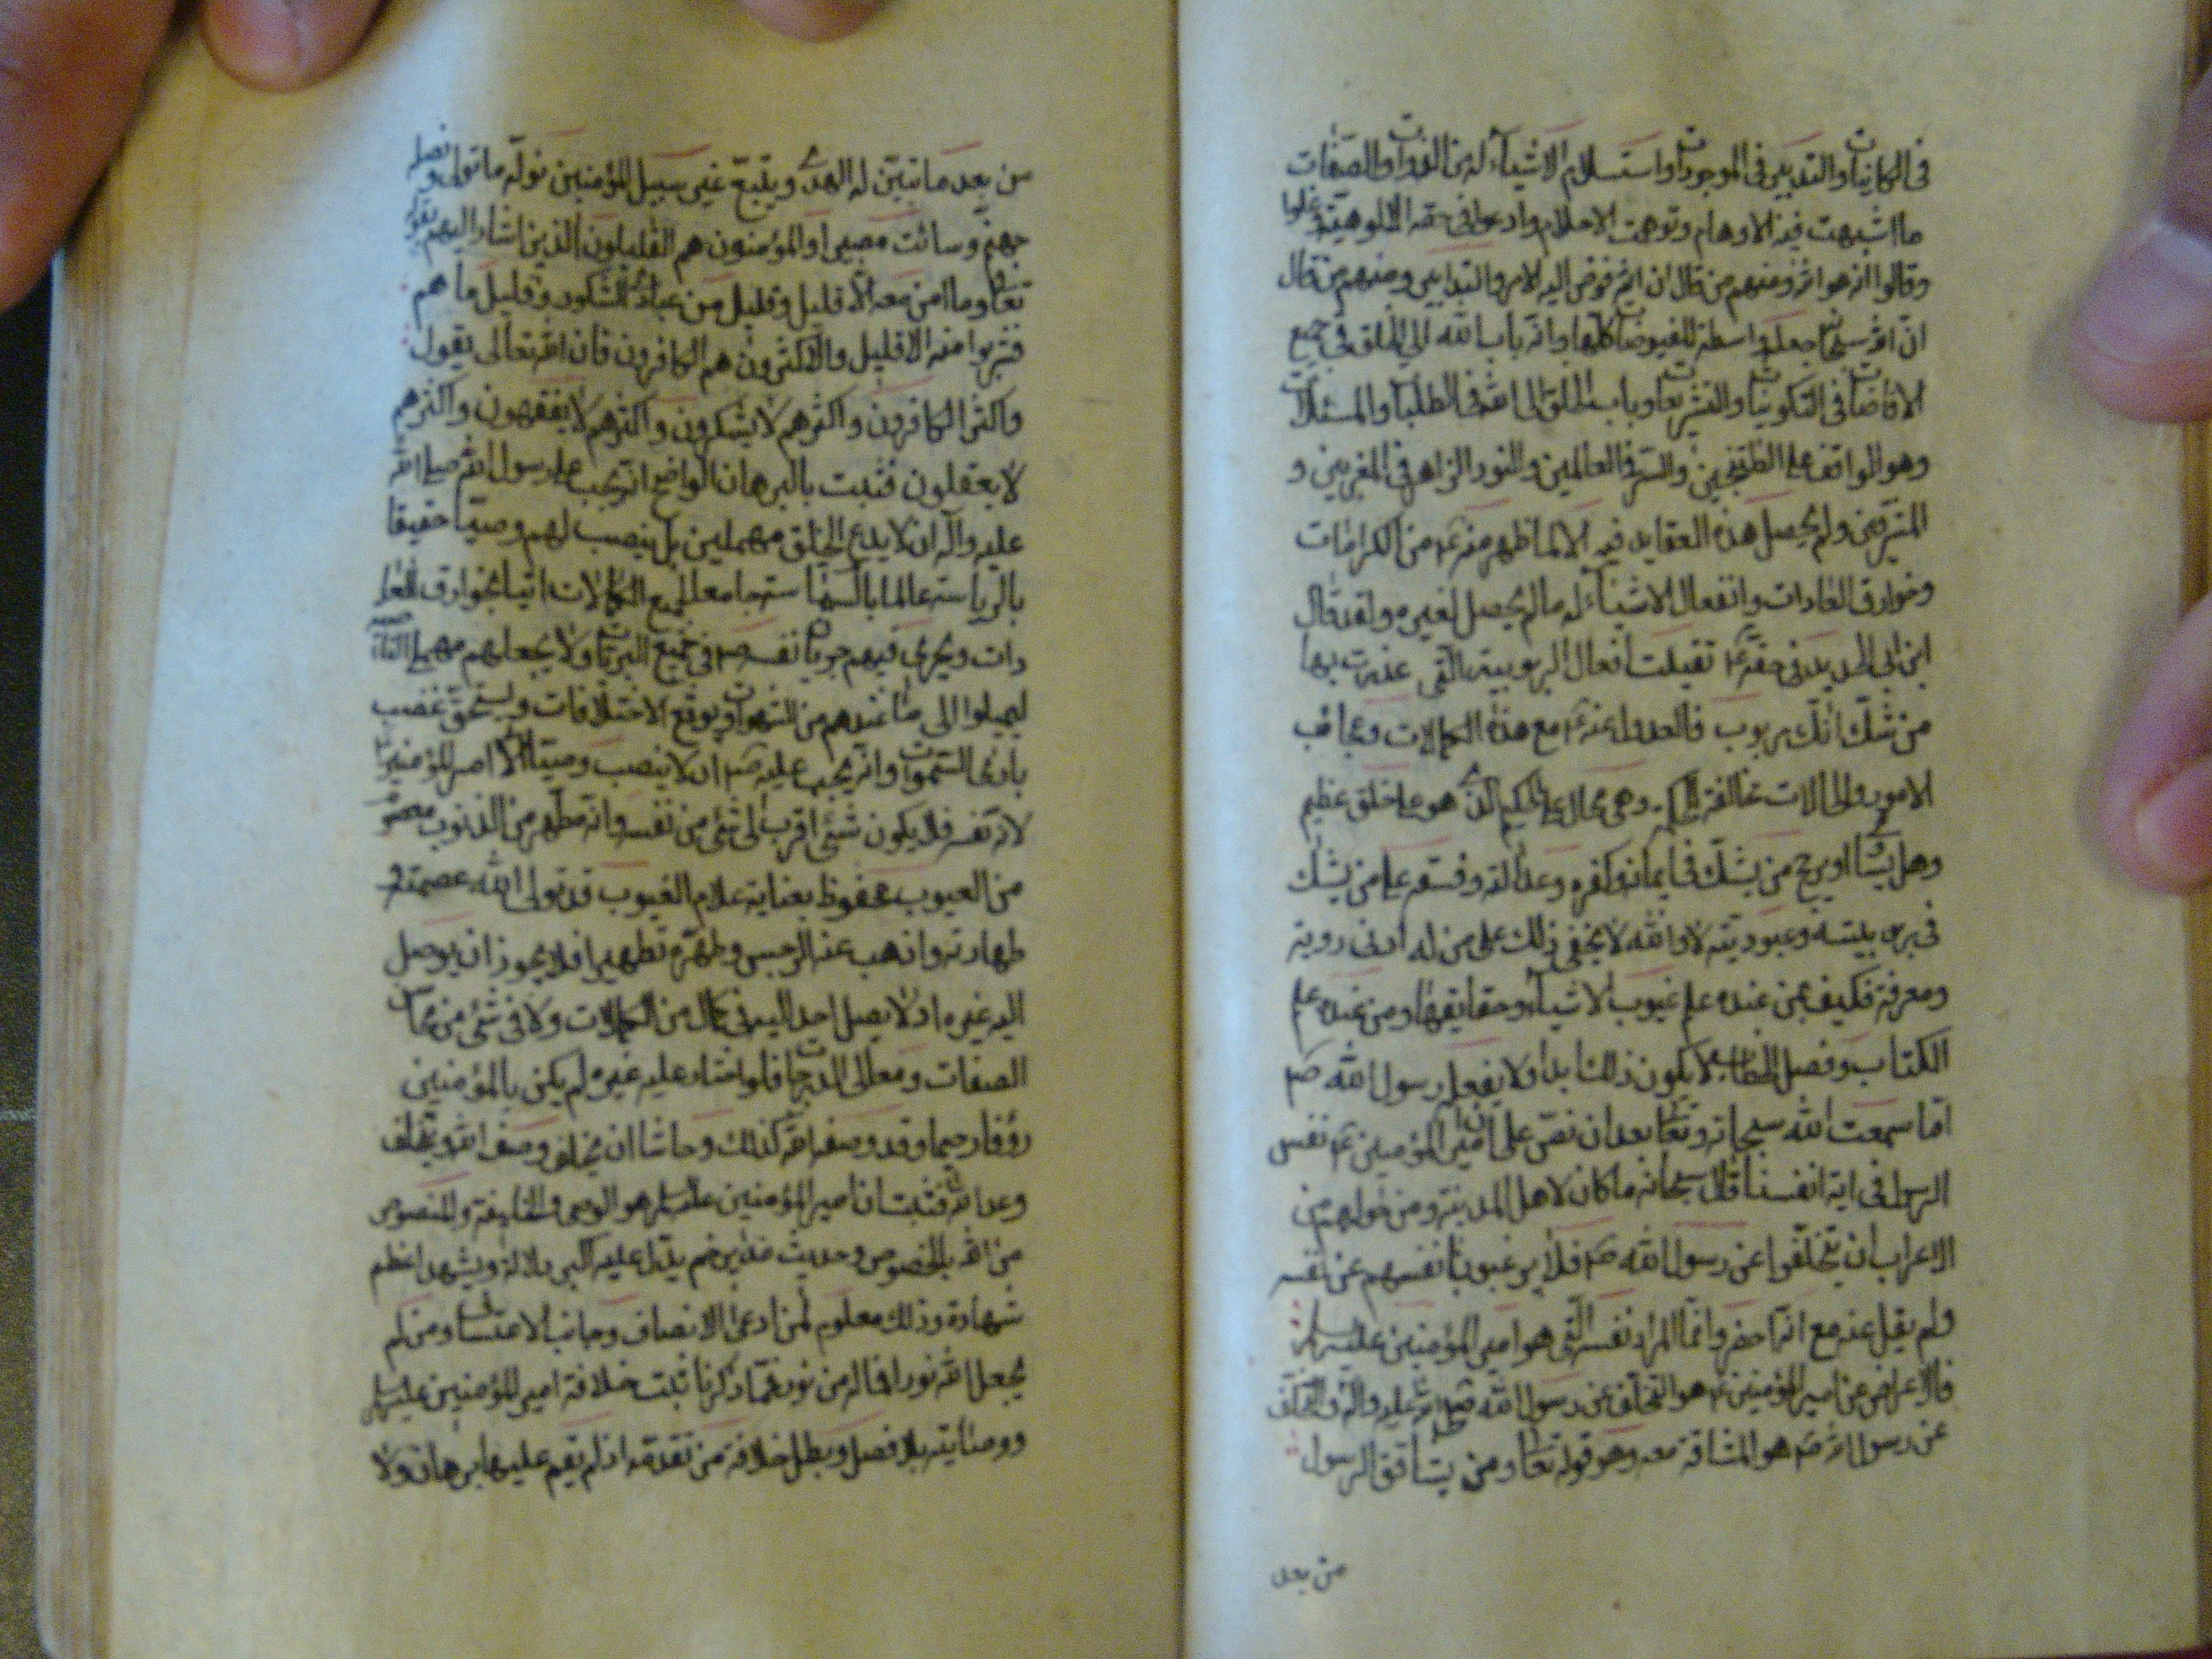 في الكاينات والتدبير في الموجودات واستسلام الاشياء له في الذوات والصفات
ما اشبهت فيه الاوهام وتوهت الاحلام وادعوا في حقه الالوهية غلوا
وقالوا انه هو الله ومنهم من قال ان الله فوض اليه الامر والتدابير ومنهم من قال
ان الله سبحانه جعله واسطة للفيوضات كلها وانه باب الله الى الخلق في جميع
الافاضات في التكوينيات والتشريعات وباب الخلق الى الله في الطلبات والمسئلات
وهو الواقف على الطتنجين والسر في العالمين والنور الزاهر في المغربين و
المشرقين ولم يحصل هذه العقايد فيه الا لما ظهر منه ع من الكرامات
وخوارق العادات وانفعال الاشياء له ما لم يحصل لغيره ولقد قال
ابن ابي الحديد في حقه ع تقيلت افعال الربوبية التي عذرت بها
من شك انك مربوب فالعدول عنه ع مع هذه الكمالات وعجائب
الامور والحالات مخالفة للحكمة وهي محال على الحكيم الذي هو على خلق عظيم
وهل يشاء او يرجح من يشك في ايمانه وكفره وعدالته وفسقه على من يشك
في بربيته وعبوديته لا والله لا يخفى ذلك على من له ادنى روية
ومعرفة فكيف بمن عنده علم غيوب الاشياء وحقايقها ومن عنده علم
الكتاب وفصل الخطاب لا يكون ذلك ابدا ولا يفعل رسول الله ص
اما سمعت الله سبحانه وتعالى بعد ان نص على ان امير المؤمنين ع نفس
الرسول في اية انفسنا قال سبحانه ما كان لاهل المدينة ومن حولهم من
الاعراب ان يتخلفوا عن رسول الله ص فلا يرغبون بانفسهم عن نفسه
ولم يقل عنه مع انه اخصر وانما المراد نفسه التي هو امير المؤمنين عليه السلام
فالاعراض عن امير المؤمنين ع هو التخلف عن رسول الله صلى الله عليه واله والتخلف
عن رسول الله ص هو المشاقة معه وهو قوله تعالى ومن يشاقق الرسول
من بعد
من بعد ما تبين له الهدى ويتبع غير سبيل المؤمنين نوله ما تولى ونصله
جهنم وسائت مصيرا والمؤمنون هم القليلون الذين اشار اليهم بقوله
تعالى وما امن معه الا قليل وقليل من عبادي الشكور وقليل ما هم
فشربوا منه الا قليل والاكثرون هم الكافرون فان الله تعالى يقول
واكثرهم الكافرون واكثرهم لا يشكرون واكثرهم لا يفقهون واكثرهم
لا يعقلون فثبت بالبرهان الواضح انه يجب على رسول الله صلى الله
عليه واله ان لا يدع الخلق مهملين بل ينصب لهم وصيا حقيقا
بالرياسة عالما بالسياسة جامعا لجميع الكمالات اتيا بخوارق العا
دات ويجري فيهم جريان نفسه ص في جميع البريات ولا يجعلهم
ليميلوا الى ما عندهم من الشهوات ويوقع الاختلافات ويستحق غضب
بارئ السموات وانه يجب عليه ص ان لا ينصب وصيا الا امير المؤمنين ع
لانه نفسه فلا يكون شئ اقرب الى شئ من نفسه وانه مطهر من الذنوب معصوم
من العيوب محفوظ بعناية علام الغيوب قد تولى الله عصمته و
طهارته واذهب عنه الرجس وطهره تطهيرا فلا يجوز ان يوصل
اليه غيره اذ لا يصل احد اليه في كمال من الكمالات ولا في شئ من محاسن
الصفات ومعالى الدرجات فلو اختار عليه غيره لم يكن بالمؤمنين
رؤفا رحيما وقد وصفه الله كذلك وحاشا ان يخلف وصف الله ويخالف
وعد الله فثبت ان امير المؤمنين عليه السلام هو الوصي والخليفة والمنصوص
من الله بالخصوص وحديث غدير خم يدل عليه اكبر دلالة ويشهد اعظم
شهادة وذلك معلوم لمن ادعى الانصاف وجانب الاعتساف ومن لم
يجعل الله نورا فما له من نور فمما ذكرنا ثبت خلافة امير المؤمنين عليه السلام
ووصايته بلا فصل وبطل خلافة من تقدمه اذ لم يقم عليها برهان ولا